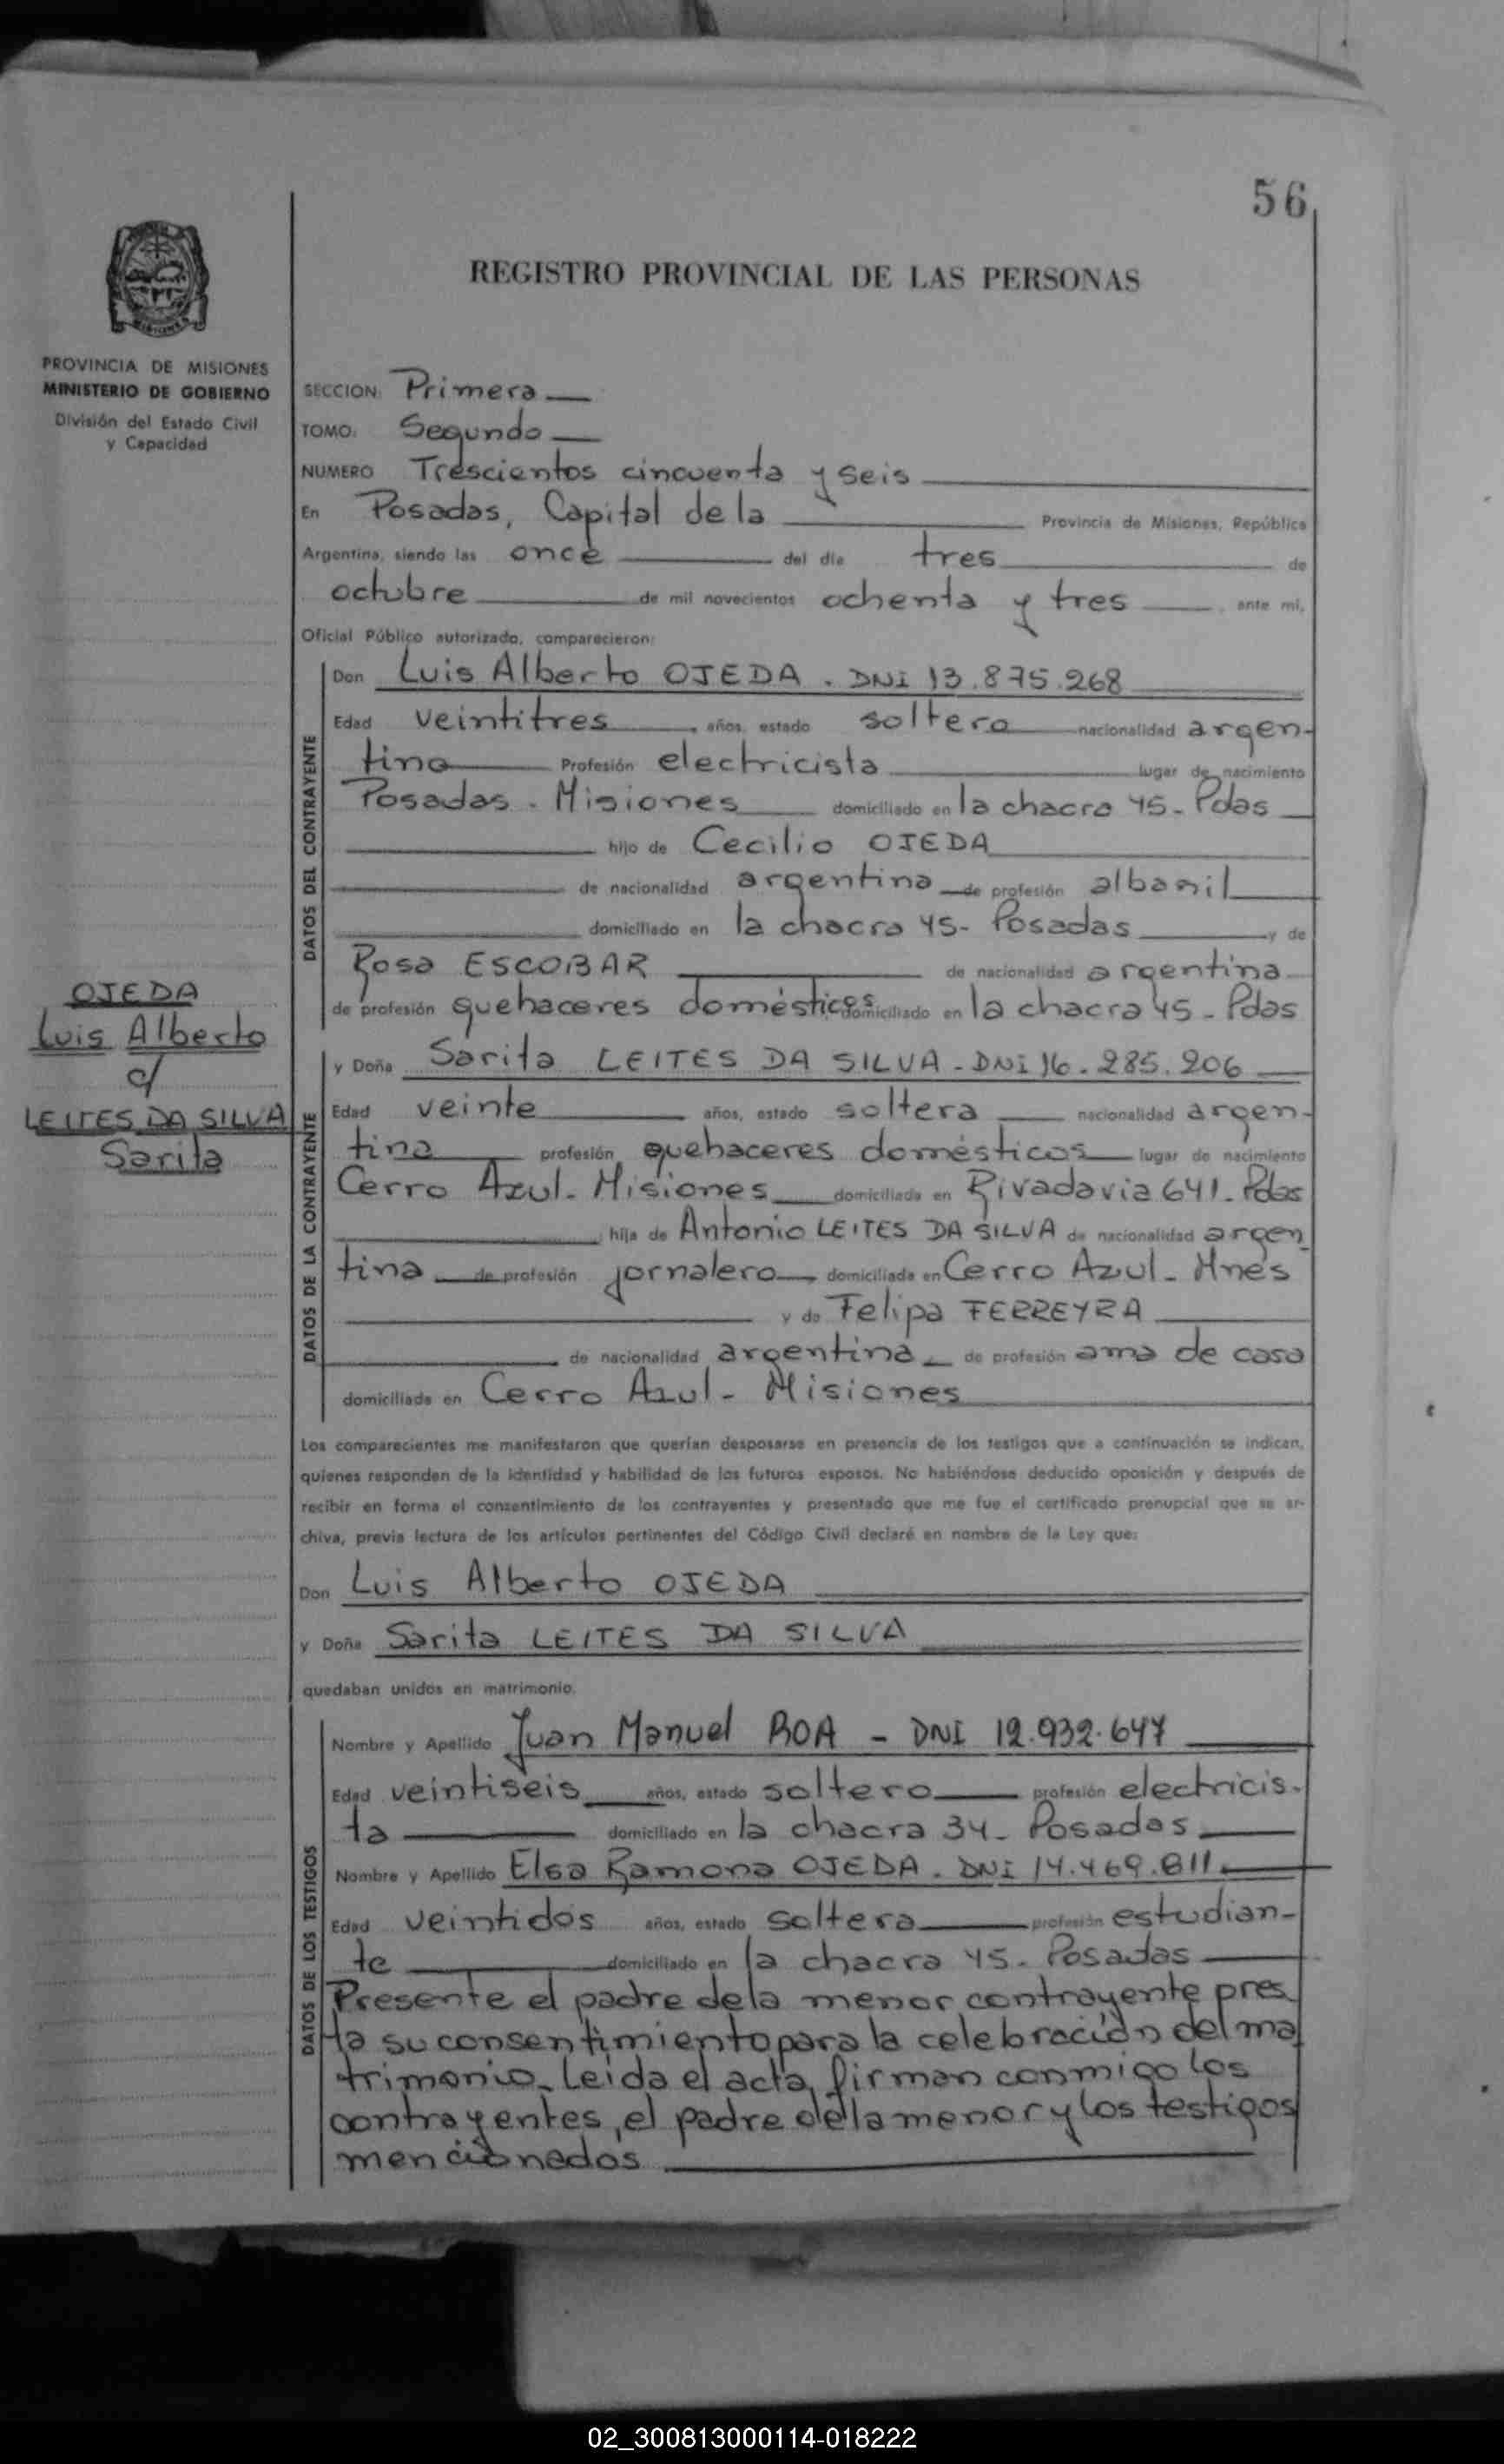 56
REGISTRO PROVINCIAL DE LAS PERSONAS
PROVINCIA DE MISIONES
MINISTERIO DE GOBIERNO
División del Estado Civil
y Capacidad
SECCION: Primera
TOMO: Segundo
NUMERO Trescientos cincuenta y seis
En Posadas, Capital de la Provincia de Misiones, República
Argentina, siendo las once del día tres de
octubre de mil novecientos ochenta y tres ante mí,
Oficial Público autorizado, comparecieron:
DATOS DEL CONTRAYENTE
Don Luis Alberto OJEDA. DNI 13.875.268
Edad veintitres, años, estado soltero nacionalidad argen-
tina Profesión electricista lugar de nacimiento
Posadas. Misiones domiciliado en la chacra 45- Pdas
hijo de Cecilio OJEDA
de nacionalidad argentina de profesión albañil
domiciliado en la chacra 45- Posadas y de
Rosa ESCOBAR de nacionalidad argentina
de profesión quehaceres domésticos domiciliado en la chacra 45- Pdas
OJEDA
Luis Alberto
c/
LEITES DA SILVA
Sarita
DATOS DE LA CONTRAYENTE
y Doña Sarita LEITES DA SILVA - DNI 16.285.206
Edad veinte años, estado soltera nacionalidad argen-
tina profesión quehaceres domésticos lugar de nacimiento
Cerro Azul- Misiones domiciliada en Rivadavia 641- Pdas
hija de Antonio LEITES DA SILVA de nacionalidad argen
tina de profesión jornalero domiciliado en Cerro Azul- Mnes
y de Felipa FERREYRA
de nacionalidad argentina de profesión ama de casa
domiciliada en Cerro Azul- Misiones
Los comparecientes me manifestaron que querían desposarse en presencia de los testigos que a continuación se indican,
quienes responden de la identidad y habilidad de los futuros esposos. No habiéndose deducido oposición y después de
recibir en forma el consentimiento de los contrayentes y presentado que me fue el certificado prenupcial que se ar-
chiva, previa lectura de los artículos pertinentes del Código Civil declaré en nombre de la Ley que:
Don Luis Alberto OJEDA
y Doña Sarita LEITES DA SILVA
quedaban unidos en matrimonio.
DATOS DE LOS TESTIGOS
Nombre y Apellido Juan Manuel ROA - DNI 12.932.647
Edad veintiseis años, estado soltero profesión electricis-
ta domiciliado en la chacra 34- Posadas
Nombre y Apellido Elsa Ramona OJEDA. DNI 14.469.811
Edad veintidos años, estado soltera profesión estudian-
te domiciliado en la chacra 45. Posadas
Presente el padre de la menor contrayente pres
ta su consentimiento para la celebración del ma
trimonio. Leida el acta, firman conmigo los
contrayentes, el padre de la menor y los testigos
mencionados
02_300813000114-018222